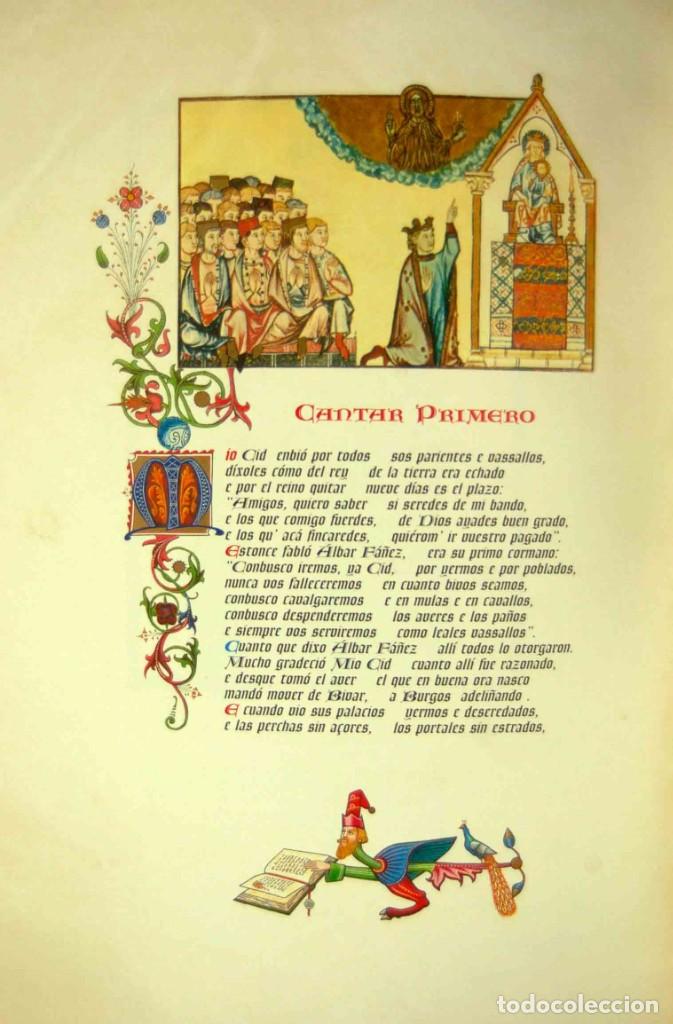 CANTAR PRIMERO
Mio Cid enbió por todos sos parientes e vassallos,
díxoles cómo del rey de la tierra era echado
e por el reino quitar nueve días es el plazo:
"Amigos, quiero saber si seredes de mi bando,
e los que comigo fuerdes, de Dios ayades buen grado,
e los qu' acá fincaredes, quiérom' ir vuestro pagado".
Estonce fabló Álbar Fáñez, era su primo cormano:
"Conbusco iremos, ya Cid, por yermos e por poblados,
nunca vos falleceremos en cuanto bivos seamos,
conbusco cavalgaremos e en mulas e en cavallos,
conbusco despenderemos los averes e los paños
e siempre vos serviremos como leales vassallos".
Cuanto que dixo Álbar Fáñez allí todos lo otorgaron.
Mucho gradeció Mio Cid cuanto allí fue razonado,
e desque tomó el aver el que en buena ora nasco
mandó mover de Bivar, a Burgos adeliñando .
E cuando vio sus palacios yermos e deseredados,
e las perchas sin açores, los portales sin estrados,
todocoleccion